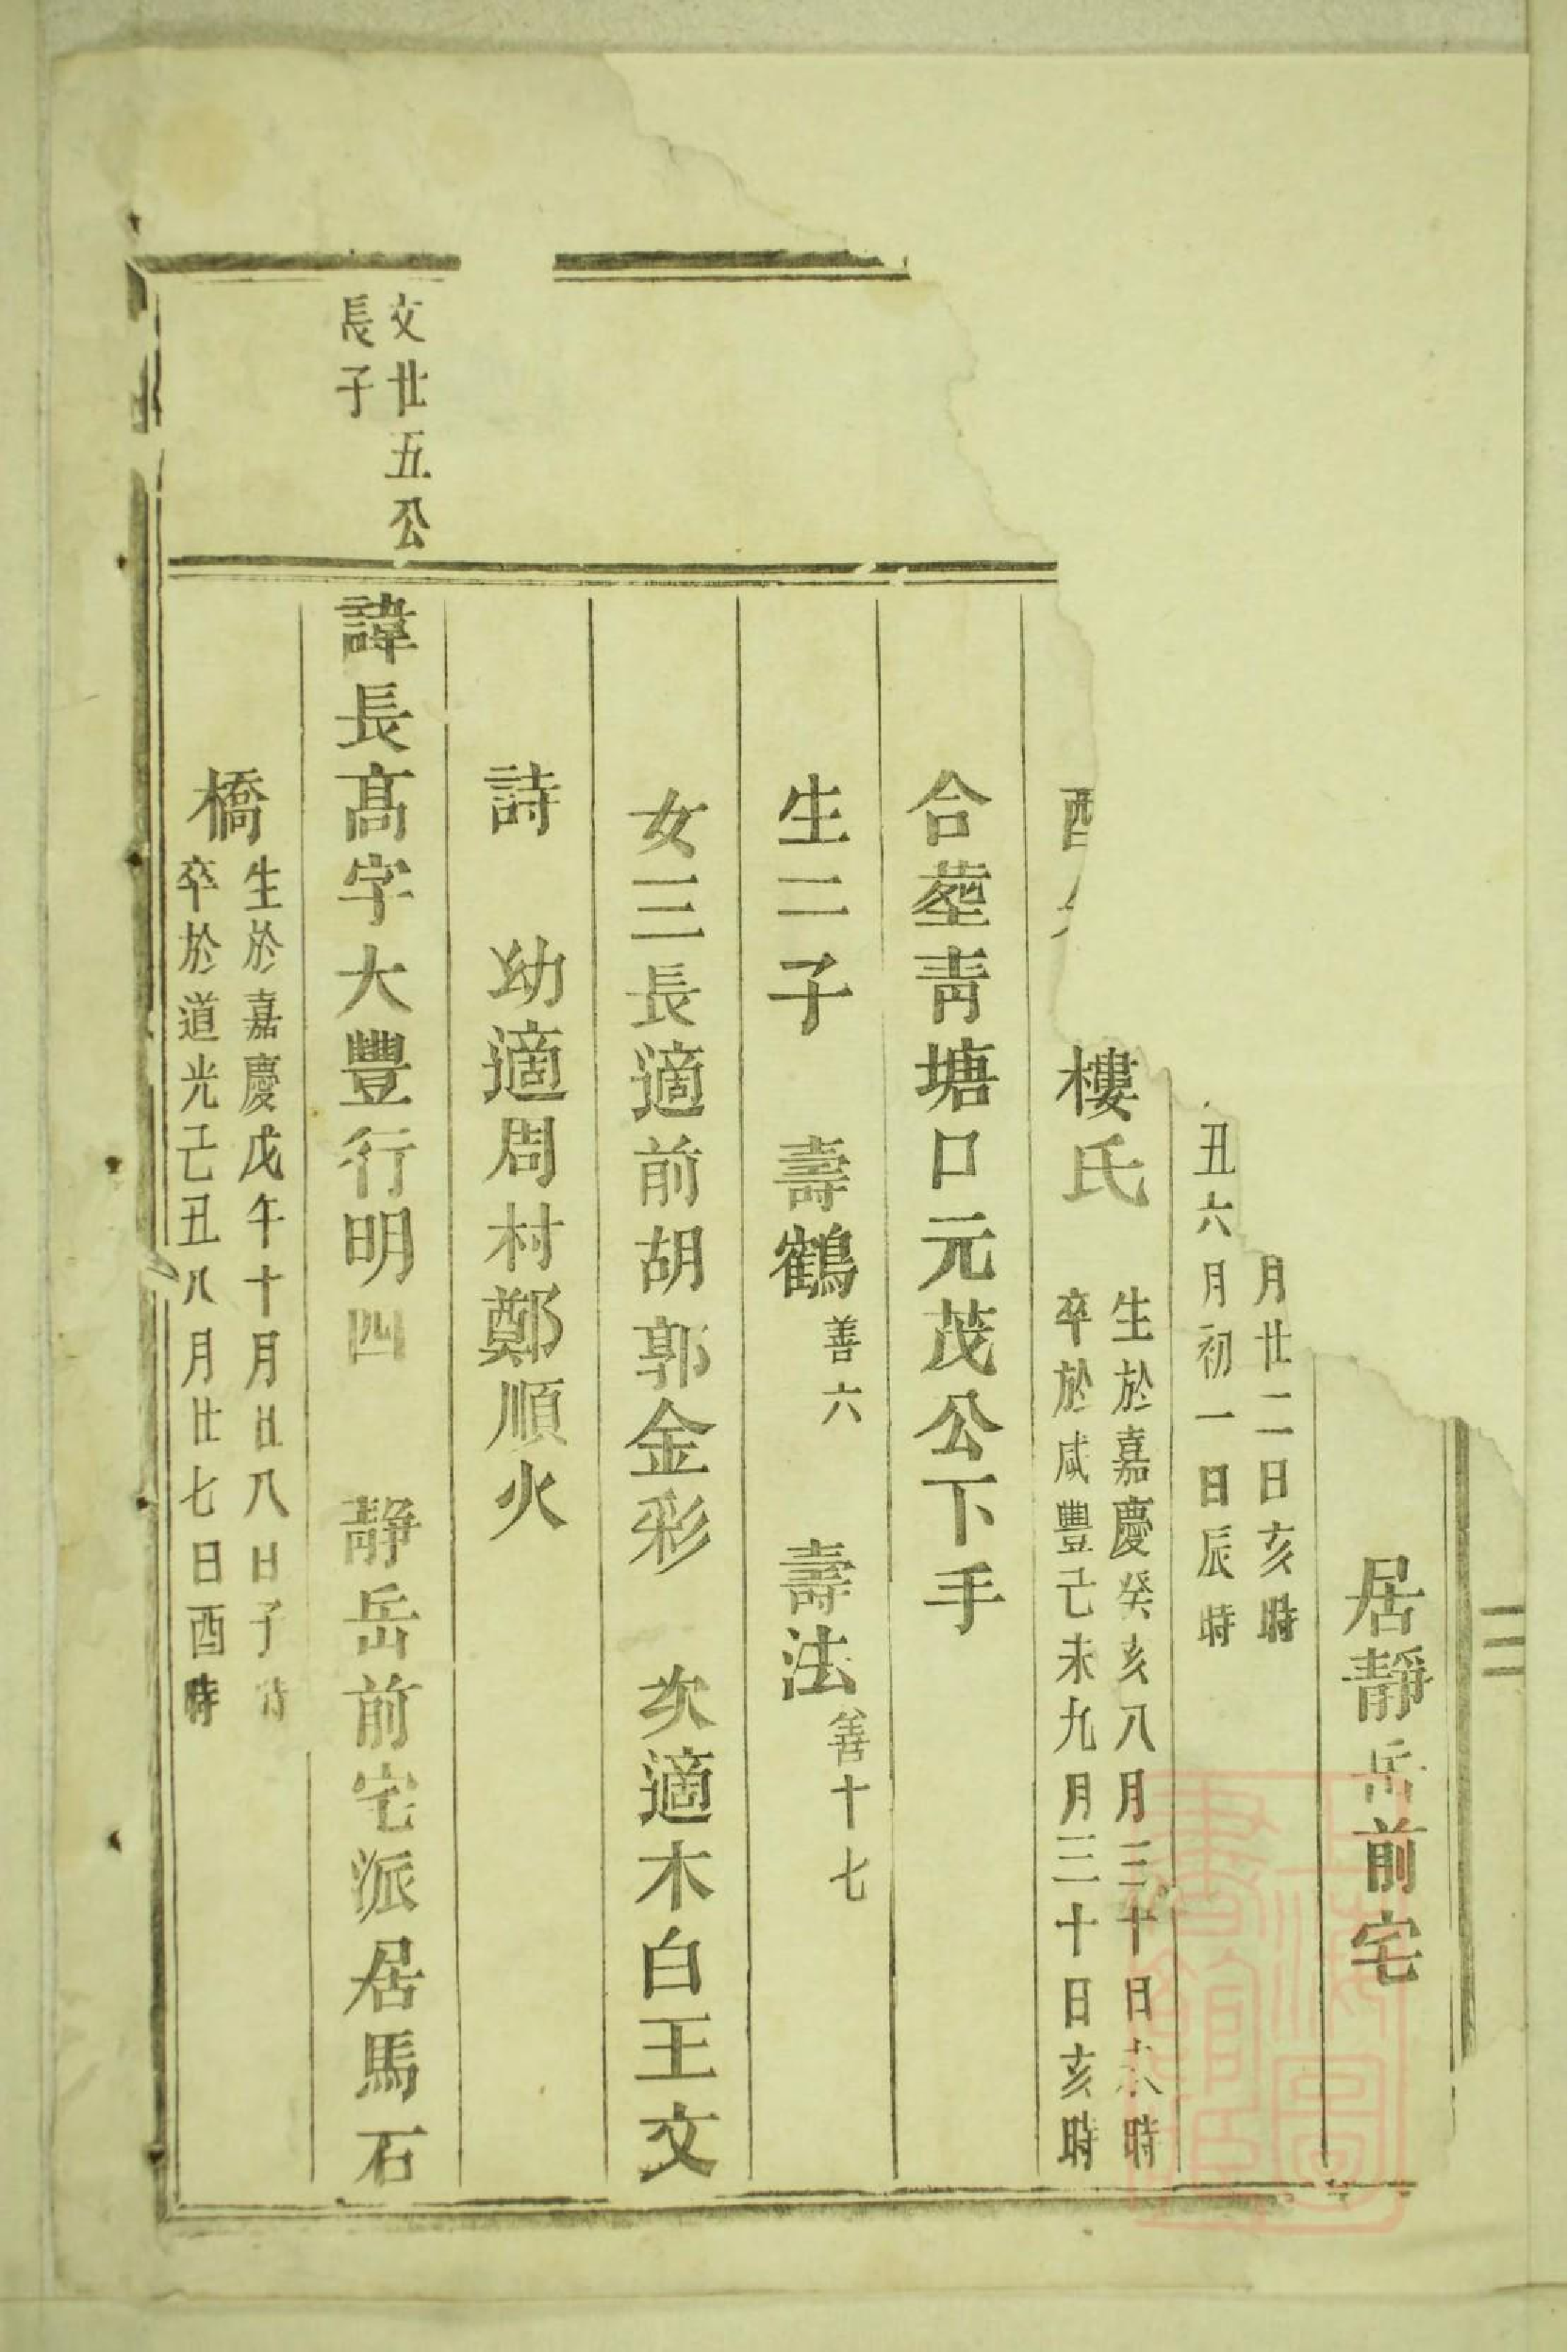 居靜岳前宅
月廿二日亥時
丑六月初一日辰時
配
樓氏
生於嘉慶癸亥八月三十日未時
卒於咸豐己未九月三十日亥時
合塟靑塘口元茂公下手
生二子 壽鶴善六 壽法善十七
女三長適前胡郭金彩 次適木白王文
詩 幼適周村鄭順火
文廿五公
長子
諱長髙字大豐行明四 靜岳前宅派居馬石
橋
生於嘉慶戊午十月廿八日子時
卒於道光己丑八月廿七日酉時